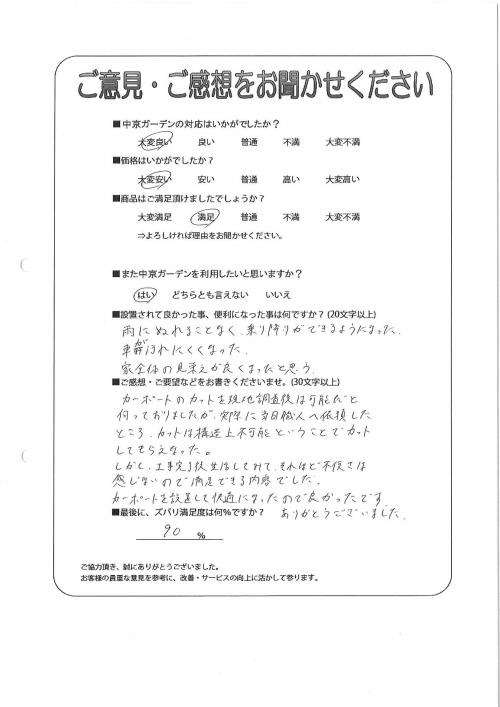 ご意見・ご感想をお聞かせください
■中京ガーデンの対応はいかがでしたか？
大変良い 良い 普通 不満 大変不満
■価格はいかがでしたか？
大変安い 安い 普通 高い 大変高い
■商品はご満足頂けましたでしょうか？
大変満足 満足 普通 不満 大変不満
⇒よろしければ理由をお聞かせください。
■また中京ガーデンを利用したいと思いますか？
はい どちらとも言えない いいえ
■設置されて良かった事、便利になった事は何ですか？(20文字以上)
雨にぬれることなく、乗り降りができるようになった。
車がよごれにくくなった。
家全体の見栄えが良くなったと思う。
■ご感想・ご要望などをお書きくださいませ。(30文字以上)
カーポートのカットを現地調査後は可能だと
伺っておりましたが、実際に当日職人へ依頼した
ところ、カットは構造上不可能ということでカット
してもらえなかった。
しかし、工事完了後生活してみて、それほど不便さは
感じないので満足できる内容でした。
カーポートを設置して快適になったので良かったです。
■最後に、ズバリ満足度は何%ですか？ ありがとうございました。
90 %
ご協力頂き、誠にありがとうございました。
お客様の貴重な意見を参考に、改善・サービスの向上に活かして参ります。